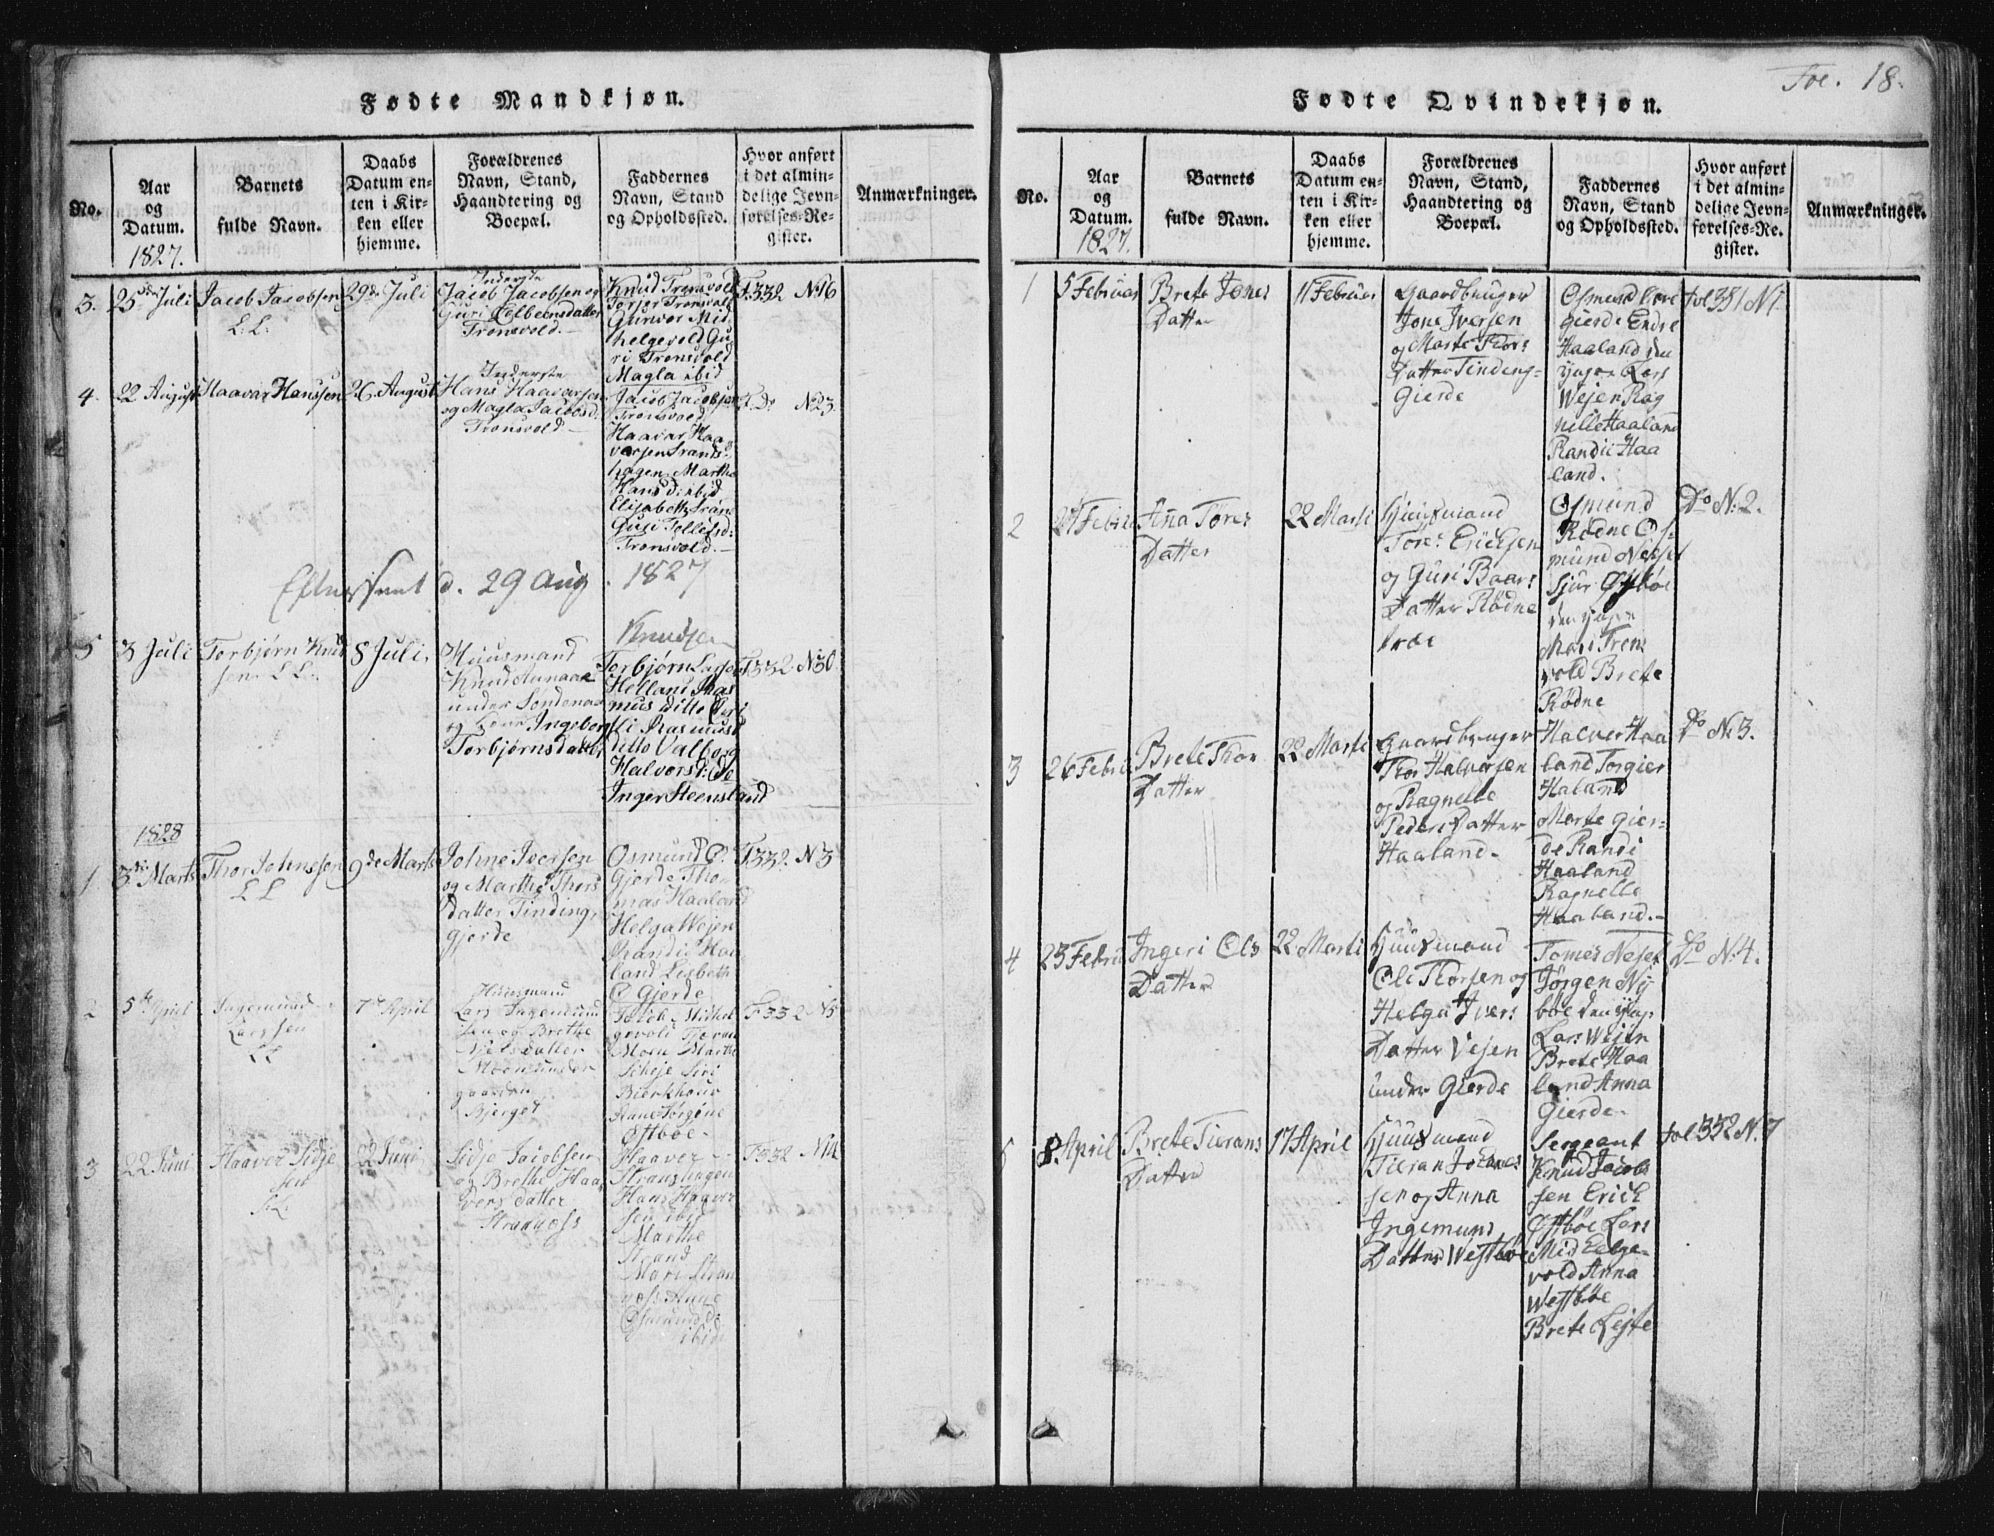 Fol. 18.
Fødte Mandkjøn.
No.
Aar
og
Datum.
1827.
Barnets
fulde Navn.
Daabs
Datum en-
ten i Kir-
ken eller
hjemme.
Forældrenes
Navn, Stand,
Haandtering og
Boepæl.
Faddernes
Navn, Stand
og Opholdssted.
Hvor anført
i det almin-
delige Jevn-
førelses-Re-
gister.
Anmærkninger.
3.
25de Juli
Jacob Jacobsen
L: L:
29de Juli
Inderste
Jacob Jacobsen og
Guri
Tronsvold.
Knud Tronsvold
Torjer Tronsvold
Gunvor Mid
helgevold Gu
ri Tronsvold
Magla ibid
F.332 No 16
4.
22 August
Haavar Hanssen
26 August
Inderste
Hans Haavarsen
og Magla Jacobsd:
Tronsvold.
Jacob Jacobsen
Tronsvold
Haavar Haa
varsen Strands
hagen Marthe
Hans d: ibid
Elisabeth
Guri Tollefsd:
Tronsvold.
Do No 23.
d. 29 Aug. 1827
5
3 Juli
Torbjørn Knud
sen L L.
8 Juli.
Huusmand
Knud
under Søndenaa
og Kone Ingeborg
Torbjørnsdatter
Knudsen
Torbjørn Larsen
Helland Ras
mus ditto
Rasmusd
ditto Valborg
Halvorsd: &
Inger Steensland
F332. No 30.
1828
1.
3de Marts
Thor Johnssen
L L
9de Marts
Johne Iversen
og Marthe Thors
datter Tinding,
Gjerde
Osmund O.
Gjerde Tho
mas Haaland
Helga Wejen
Randi Haa
land Lisbeth
O Gjerde
F332. N 3
2
5te April
Ingemund
Larssen
L L
7de April
Huusmand
Lars Ingemund
sen og Brethe
Nielsdatter
Moen under
gaarden
Bjerget
Mithel
gevold Tieran
Moen Marthe
Siri
Bierkhour
Ane Jørgine
Østbøe.
F332 N5
3
22 Juni
Haaver Sidje
sen
L:L:
22 Juni
Sidje Jacobsen
og Brethe Haa
vers datter
Strandoss
Haaver
Strandhagen
Hans Haaver
sen ibid
Marthe
Strand
Mari Stran
doss Anne
Osmundsd:
ibid
F332 N 14
Fødte Qvindekjøn.
No.
Aar
og
Datum.
1827.
Barnets
fulde Navn.
Daabs
Datum en-
ten i Kir-
ken eller
hjemme.
Forældrenes
Navn, Stand,
Haandtering og
Boepæl.
Faddernes
Navn, Stand
og Opholdssted.
Hvor anført
i det almin-
delige Jevn-
førelses-Re-
gister.
Anmærkninger.
1
5 Februar
Brete Jones
Datter
11 Februar
Gaardbruger
Jone Iversen
og Marte Thors
Datter Tinding-
Gierde
Osmund
gierde Endre
Haaland den
yngre Lars
Wejen Rag
nille Haaland
Randi Haa
land.
fol 331 N 1.
2
Febru
Ana Tores
Datter
22 Marti
Huusmand
Tore Ericksen
og Guri Baars
Datter Rødne
træe
Osmund
Rødne Os-
mund Nesset
Sjur Østbøe
den yngre
Mari Trons
vold Brete
Rødne
Do N: 2.
3
26 Febru
Brete Thor
Datter
22 Marti
Gaardbruger
Thor Halversen
og Ragnelle
Peders Datter
Haaland-
Halver Haa
land Torgier
Haland
Marte Gier-
de Randi
Haaland
Ragnelle
Haaland.-
Do N: 3.
4
23 Febru
Ingeri Ols
Datter
22 Marti
Huusmand
Ole Thorsen og
Helga Ivers
Datter Vejen
under Gierde
Tomes Neset
Jørgen Ny
bøe den yngr
Lars Wejen
Brete Haa
land Anna
Gierde-
Do N: 4.
8 April
Brete Tierans
Datter
17 April
Huusmand
Tieran Johanes
sen og Anna
Ingemund
Datter Westbøe
Sergeant
Knud Jacob
sen Erick
Østbøe Lars
Mid Helge-
vold Anna
Westbøe
Brete Lejte
fol 332 N. 7